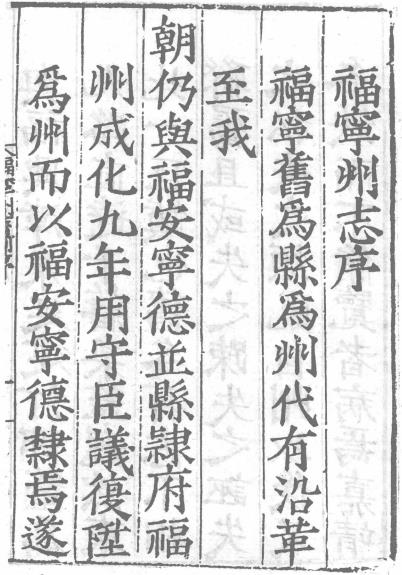 福寧州志序
福寧舊爲縣爲州代有沿革
至我
朝仍與福安寧德並縣隷府福
州成化九年用守臣議復陞
爲州而以福安寧德隸焉遂